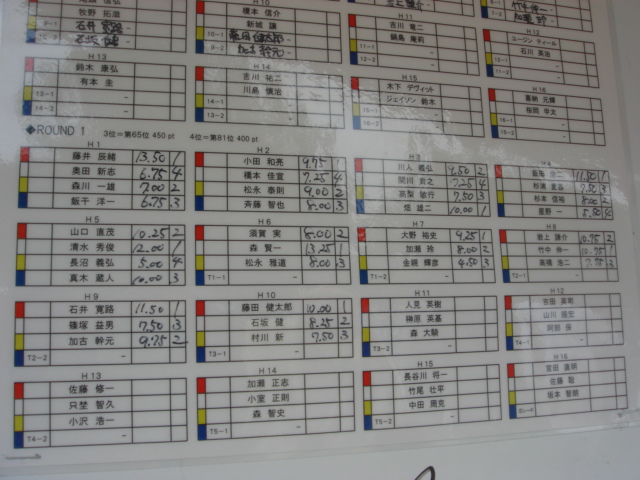 牧野 拓滋
橋本 信介
新城 譲
H11
吉川 竜二
鍋島 庵莉
H12
ユージン ティール
石川 英治
H13
鈴木 康弘
有本 圭
13-1 -
13-2 -
H14
吉川 祐二
川畠 慎治
14-1 -
14-2 -
H15
木下 デヴィット
ジェイソン 鈴木
15-1 -
15-2 -
H16
喜納 元輝
16-1 -
16-2 -
◆ROUND 1 3位=第65位 450 pt 4位=第81位 400 pt
H1
藤井 辰緒 13.50 1
奥田 新志 6.75 4
森川 一雄 7.00 2
飯干 洋一 6.75 3
H2
小田 和亮 9.75 1
橋本 佳宣 7.25 4
松永 泰則 9.00 2
斉藤 智也 8.00 3
H3
川人 義弘 9.50 2
関川 約之 7.25 4
高梨 敏行 7.50 3
畑 雄二 10.00 1
H4
11.50 1
7.50 3
杉本 信裕 8.00 2
星野 一 5.50 4
H5
山口 直茂 10.25 2
清水 秀俊 12.00 1
長沼 義弘 5.00 4
真木 蔵人 10.00 3
H6
須賀 実 8.00 2
森 賢一 13.25 1
松永 雅道 8.00 3
T1-1 -
H7
大野 裕史 9.25 1
加瀬 玲 8.00 2
金親 輝彦 4.50 3
T1-2 -
H8
岩上 謙介 10.75 2
竹中 伸一 10.75 1
高橋 浩二 7.75 3
T2-1 -
H9
石井 寛路 11.50 1
篠塚 益男 7.50 3
加古 幹元 9.75 2
T2-2 -
H10
藤田 健太郎 10.00 1
石坂 健 8.25 2
村川 新 7.50 3
T3-1 -
H11
人見 英樹
榊原 英基
森 大騎
T3-2 -
H12
吉田 英範
山川 陽宏
阿部 保
T4-1 -
H13
佐藤 修一
只埜 智久
小沢 浩一
T4-2 -
H14
加瀬 正志
小室 正則
森 智史
T5-1 -
H15
長谷川 将一
竹尾 壮平
中田 周克
T5-2 -
H16
宮田 直明
佐藤 聡
坂本 智朗